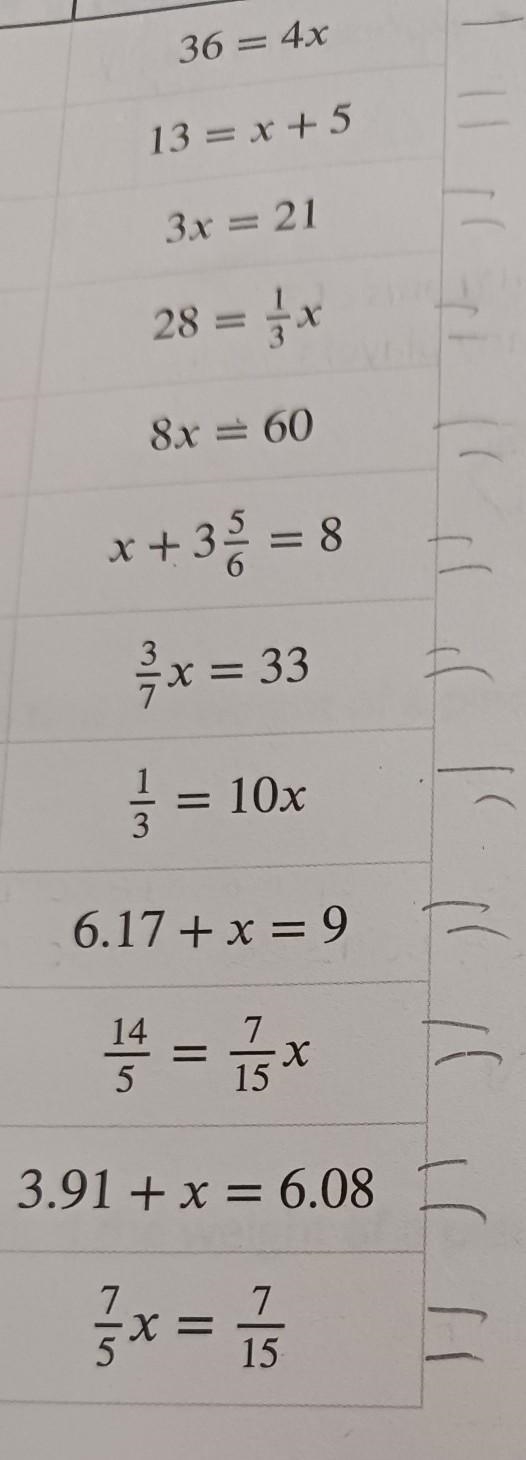 36 = 4x
13 = x + 5
3x = 21
28 = 1/3 x
8x = 60
x + 3 5/6 = 8
3/7 x = 33
1/3 = 10x
6.17 + x = 9
14/5 = 7/15 x
3.91 + x = 6.08
7/5 x = 7/15